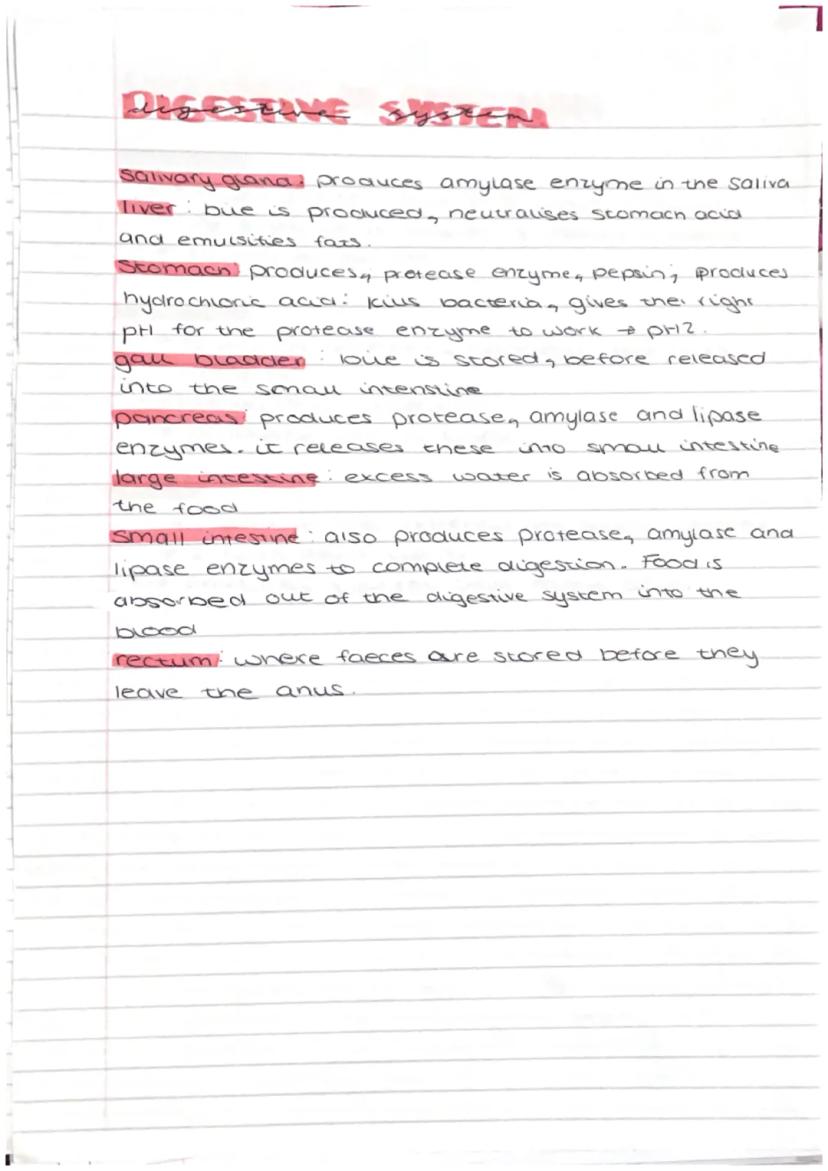 DIGESTIVE SYSTEM
digestive system
Salivary gland: produces amylase enzyme in the saliva
liver: bile is produced, neutralises stomach acid
and emulsifies fats.
Stomach: produces, protease enzyme, pepsin; produces
hydrochloric acid: kills bacteria, gives the right
pH for the protease enzyme to work → pH2.
gall bladder: bile is stored, before released
into the small intenstine
pancreas: produces protease, amylase and lipase
enzymes. it releases these into small intestine
large intestine: excess water is absorbed from
the food
Small intesine: also produces protease, amylase and
lipase enzymes to complete digestion. Food is
absorbed out of the digestive system into the
blood
rectum: where faeces are stored before they
leave the anus.